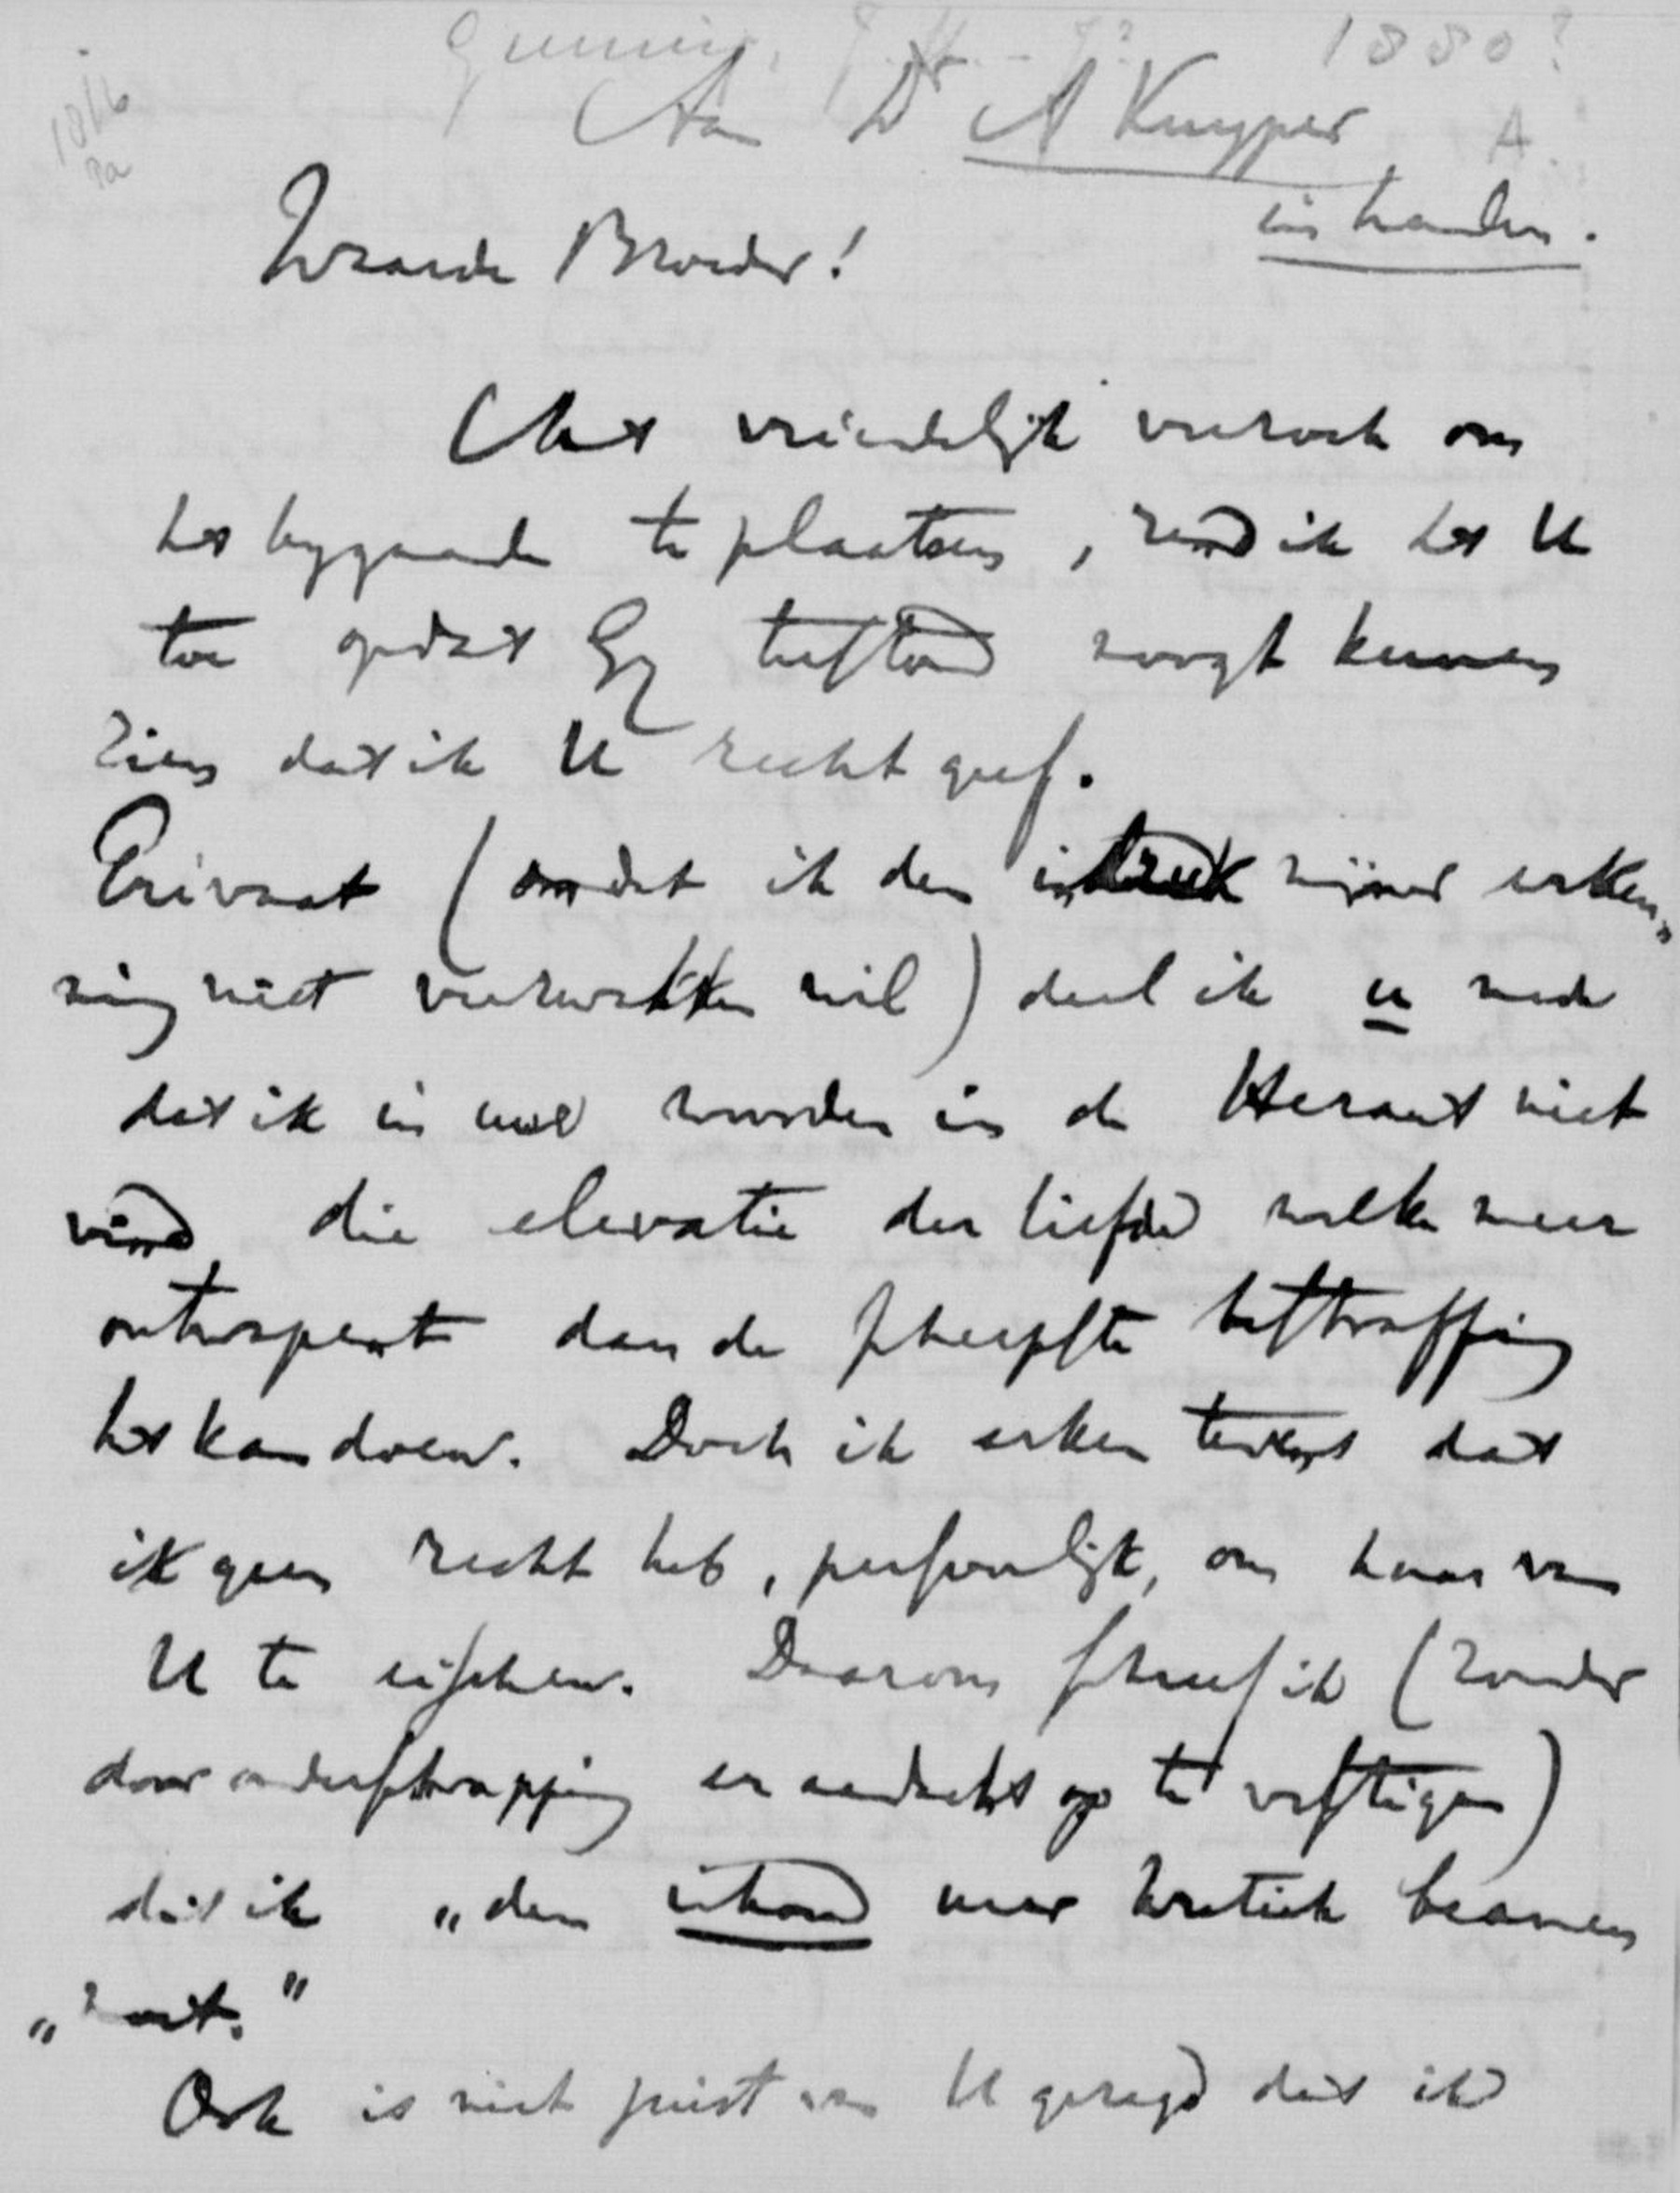 Gunning, J.H. Jr. 1880?
Aan Dr A Kuyper A.
in handen.
Waarde Broeder!
Met vriendelijk verzoek om
het bijgaande te plaatsen, zend ik het U
toe opdat Gij terstond moogt kunnen
zien dat ik U recht geef.
Privaat (omdat ik den indruk mijner erken„
ning niet verzwakken wil) deel ik u mede
dat ik in uwe woorden in de Heraut niet
vind die elevatie der liefde welke meer
ontwapent dan de scherpste bestraffing
het kan doen. Doch ik erken tevens dat
ik geen recht heb, persoonlijk, om haar van
U te eischen. Daarom schreef ik (zonder
door onderschrapping er aandacht op te vestigen)
dat ik „den inhoud uwer kritiek beamen
„moet."
Ook is niet juist van U gezegd dat ik